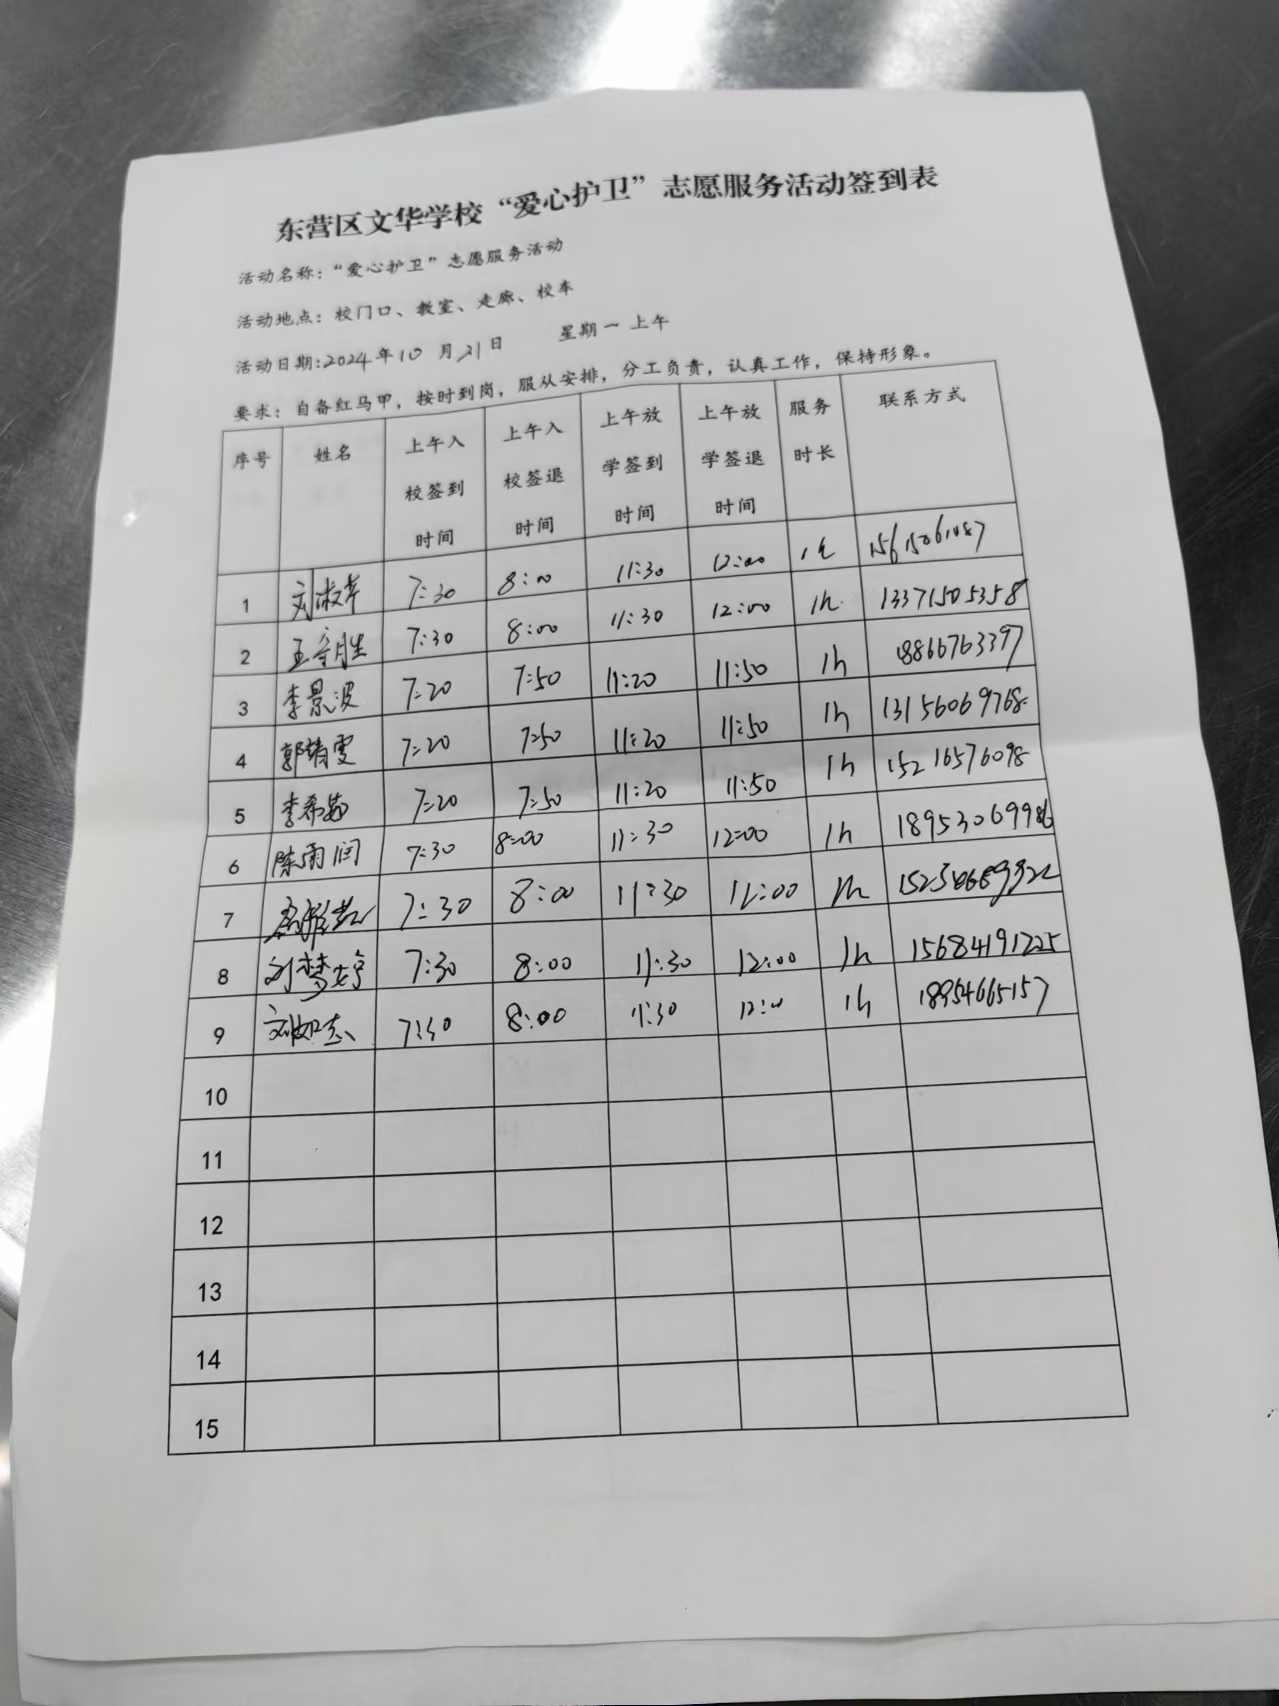 东营区文华学校“爱心护卫”志愿服务活动签到表
活动名称：“爱心护卫”志愿服务活动
活动地点：校门口、教室、走廊、校车
活动日期:2024年10月21日 星期一 上午
要求：自备红马甲，按时到岗，服从安排，分工负责，认真工作，保持形象。
序号 姓名 上午入校签到时间 上午入校签退时间 上午放学签到时间 上午放学签退时间 服务时长 联系方式
1 7:30 8:00 11:30 12:00
2 7:30 8:00 11:30 12:00 1h 13371505358
3 李景波 7:20 7:50 11:20 11:50 1h 18866763397
4 郭靖雯 7:20 7:50 11:20 11:50 1h 13156069768
5 7:20 7:50 11:20 11:50 1h 15216576098
6 陈雨润 7:30 8:00 11:30 12:00 1h 18953069986
7 7:30 8:00 11:30 12:00 1h
8 刘梦婷 7:30 8:00 11:30 12:00 1h 15684191225
9 7:30 8:00 11:30 12:00 1h 18954665157
10
11
12
13
14
15